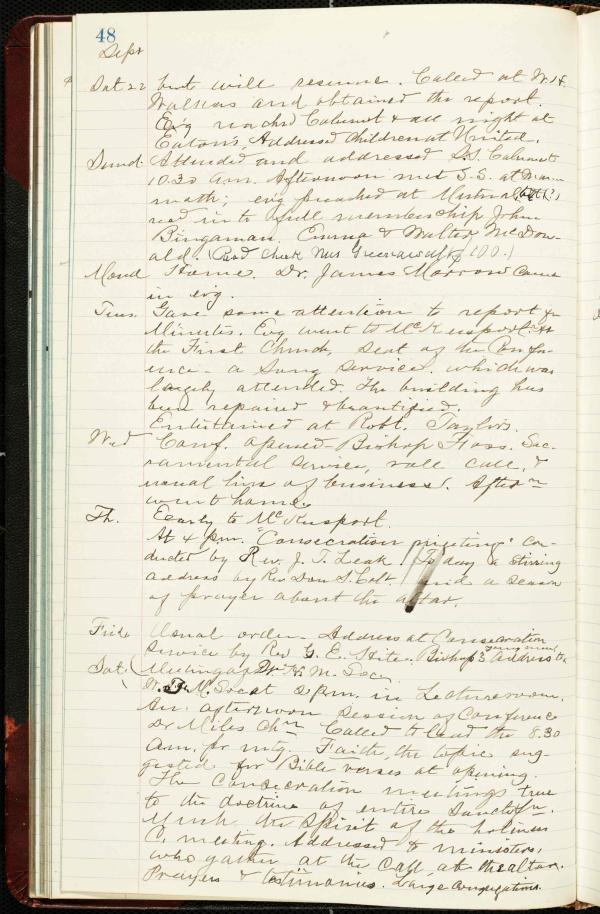 48
Sept
Sat 22 but will resume. Called at W. H.
Walkers and obtained the report.
Ev'g reached Calumet & all night at
Eaton's. Addressed children at United.
Sund. Attended and addressed S.S. Calumet
10.30 a.m. Afternoon met S.S. at Mam-
moth; evg preached at Mutual,
rec'd into full membership John
Bingaman, Emma & Walter McDon-
ald. (Rec'd check Mrs Greenawalt 100.)
Mond Home. Dr. James Morrow came
in evg.
Tues. Gave some attention to report &
Minutes. Evg went to McKeesport &
the First Church, seat of the Confer-
ence - a Song service, which was
largely attended. The building has
been repaired & beautified.
Entertained at Robt. Taylor's.
Wed Conf. opened - Bishop Foss. Sac-
ramental service, roll call, &
usual line of business. Aftern
went home.
Th. Early to McKeesport.
At 4 p.m. "Consecration meeting" con-
ducted by Rev. J. T. Leak. To day a stirring
address by Rev Don S. Colt and a season
of prayer about the altar.
Frid. Usual order - Address at Consecration
service by Rev G. E. Hite. Bishop's address to
young men
Sat. Meeting of W. H. M. Soc.
W. F. M. Soc at 2 p.m. in Lecture room.
An afternoon session of Conference
Dr Miles Chn Called to lead the 8.30
a.m. pr mtg. Faith, the topic sug-
gested for Bible verses at opening.
The Consecration meetings true
to the doctrine of entire Sanctifn.
Much the Spirit of the holiness
C. meeting. Addressed to ministers,
who gather at the call, at the altar.
Prayers & testimonies. Large congregations.